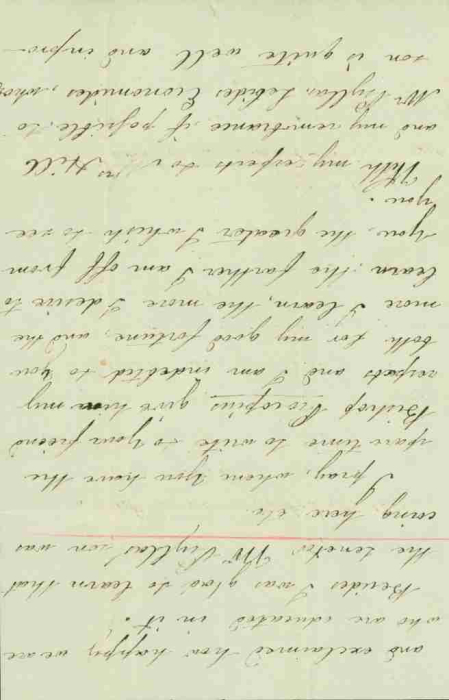 and exclaimed how happy we are
who are educated in it.
Besides I was glad to learn that
the senator Mr Psyllas' son was
here etc.
I pray, when you have the
spare time to write to your friend
Bishop Procopius, give him my
respects and I am indebted to you
both for my good fortune, and the
more I learn, the more I desire to
learn; the farther I am off from
you, the greater I wish to see
you.
With my respects to Hill
and my remembrance if possible to
Mr Psyllas, Lebides Economides, whose
son is quite well and impro-